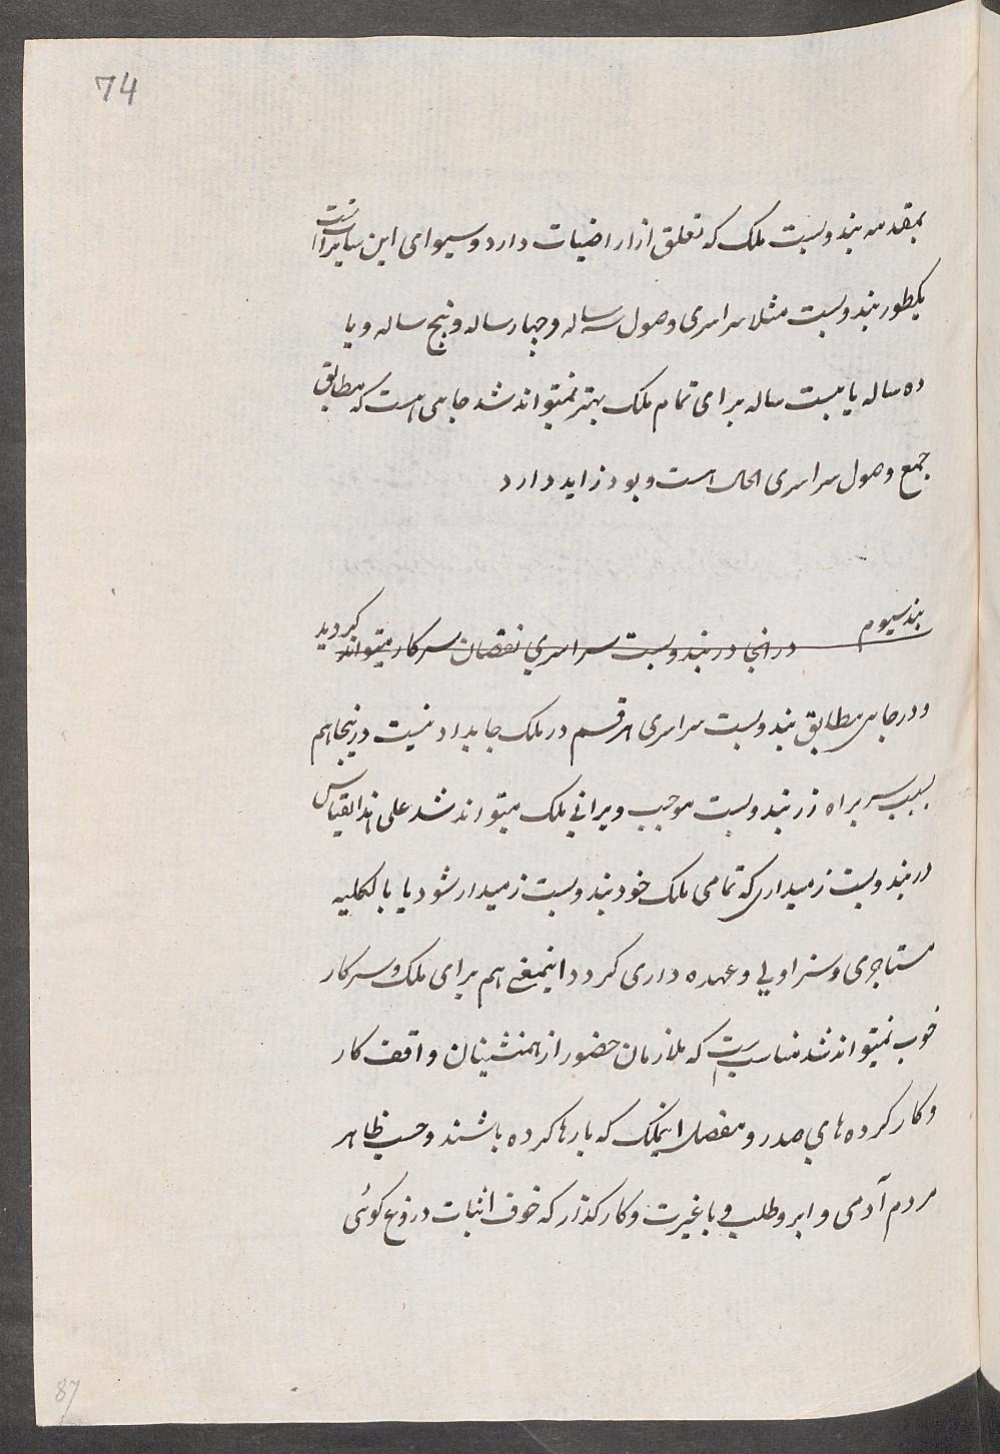 74
بمقدمه بندوبست ملک که تعلق از اراضیات دارد و سیوای این سایرات است
یکطور بندوبست مثلا سراسری وصول سه ساله و چهار ساله و پنج ساله و یا
ده ساله یا بیست ساله برای تمام ملک بهتر نمیتواند شد جاهی است که مطابق
جمع وصول سراسری الحال است و بود زاید دارد
بند سیوم درانجا در بندوبست سراسری نقصان سرکار میتواند گردید
و در جاهی مطابق بندوبست سراسری هر قسم در ملک جایداد نیست درینجا هم
بسبب سربراه زر بندوبست موجب ویرانی ملک میتواند شد علی هذا القیاس
در بندوبست زمیداری که تمامی ملک خود بندوبست زمیدار شود یا بالکلیه
مستاجری و سزاولی و عهده داری گردد اینمعنے هم برای ملک و سرکار
خوب نمیتواند شد مناسب است که ملازمان حضور از همنشینان واقف کار
و کار کرده هاي صدر و مفصل اینملک که بارها کرده باشند و حسب ظاهر
مردم آدمی و ابرو طلب و با غیرت و کارگذار که خوف اثبات دروغ گوئی
87